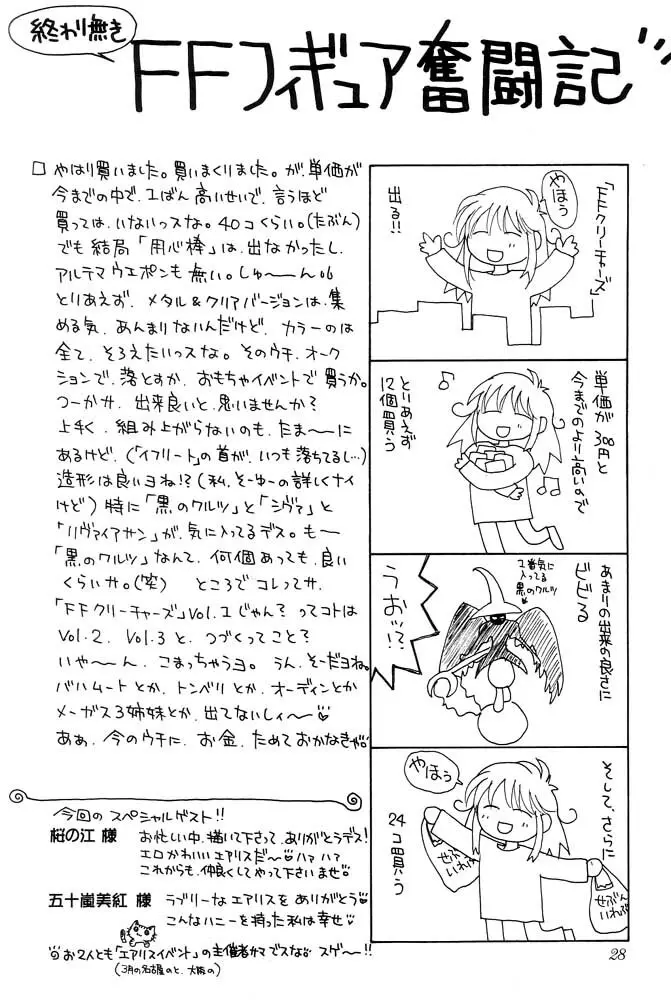 終わり無き
FFフィギュア奮闘記
□ やはり買いました。買いまくりました。が、単価が
今までの中で、1ばん高いせいで、言うほど
買っては、いないっスな。40コくらい。(たぶん)
でも結局「用心棒」は、出なかったし、
アルテマウエポンも無い。しゅ〜〜ん。
とりあえず、メタル&クリアバージョンは、集
める気、あんまりないんだけど、カラーのは
全て、そろえたいっスな。そのウチ、オーク
ションで、落とすか、おもちゃイベントで買うか。
つーかサ、出来良いと、思いませんか?
上手く、組み上がらないのも、たま〜に
あるけど、(「イフリート」の首が、いつも落ちてるし…)
造形は良いヨね!?(私、そーゆーの詳しくナイ
けど)特に「黒のワルツ」と「シヴァ」と
「リヴァイアサン」が、気に入ってるデス。も〜
「黒のワルツ」なんて、何個あっても、良い
くらいサ。(笑) ところでコレってサ、
「FFクリーチャーズ」Vol.1じゃん? ってコトは
Vol.2、Vol.3と、つづくってこと?
いや〜〜ん、こまっちゃうヨ。うん、そーだヨね。
バハムートとか、トンベリとか、オーディンとか
メーガス3姉妹とか、出てないしィ〜
ああ、今のウチに、お金、ためておかなきゃ
「FFクリーチャーズ」
出る!!
やほぅ
単価が300円と
今までのより高いので
とりあえず
12個買う
あまりの出来の良さに
ビビる
1番気に
入ってる
黒のワルツ
うおッ!?
そして、さらに
24コ買う
やほぅ
せぶん
いれぶ
せぶん
いれぶ
今回のスペシャルゲスト!!
桜の江 様
お忙しい中、描いて下さって、ありがとうデス!
エロかわいいエアリスだ〜 ハァ ハァ
これからも、仲良くしてやって下さいませ
五十嵐美紅 様
ラブリーなエアリスをありがとう
こんなハニーを持った私は幸せ
お2人とも「エアリスイベント」の主催者サマでスな スゲ〜!!
(3月の名古屋のと、大阪の)
28